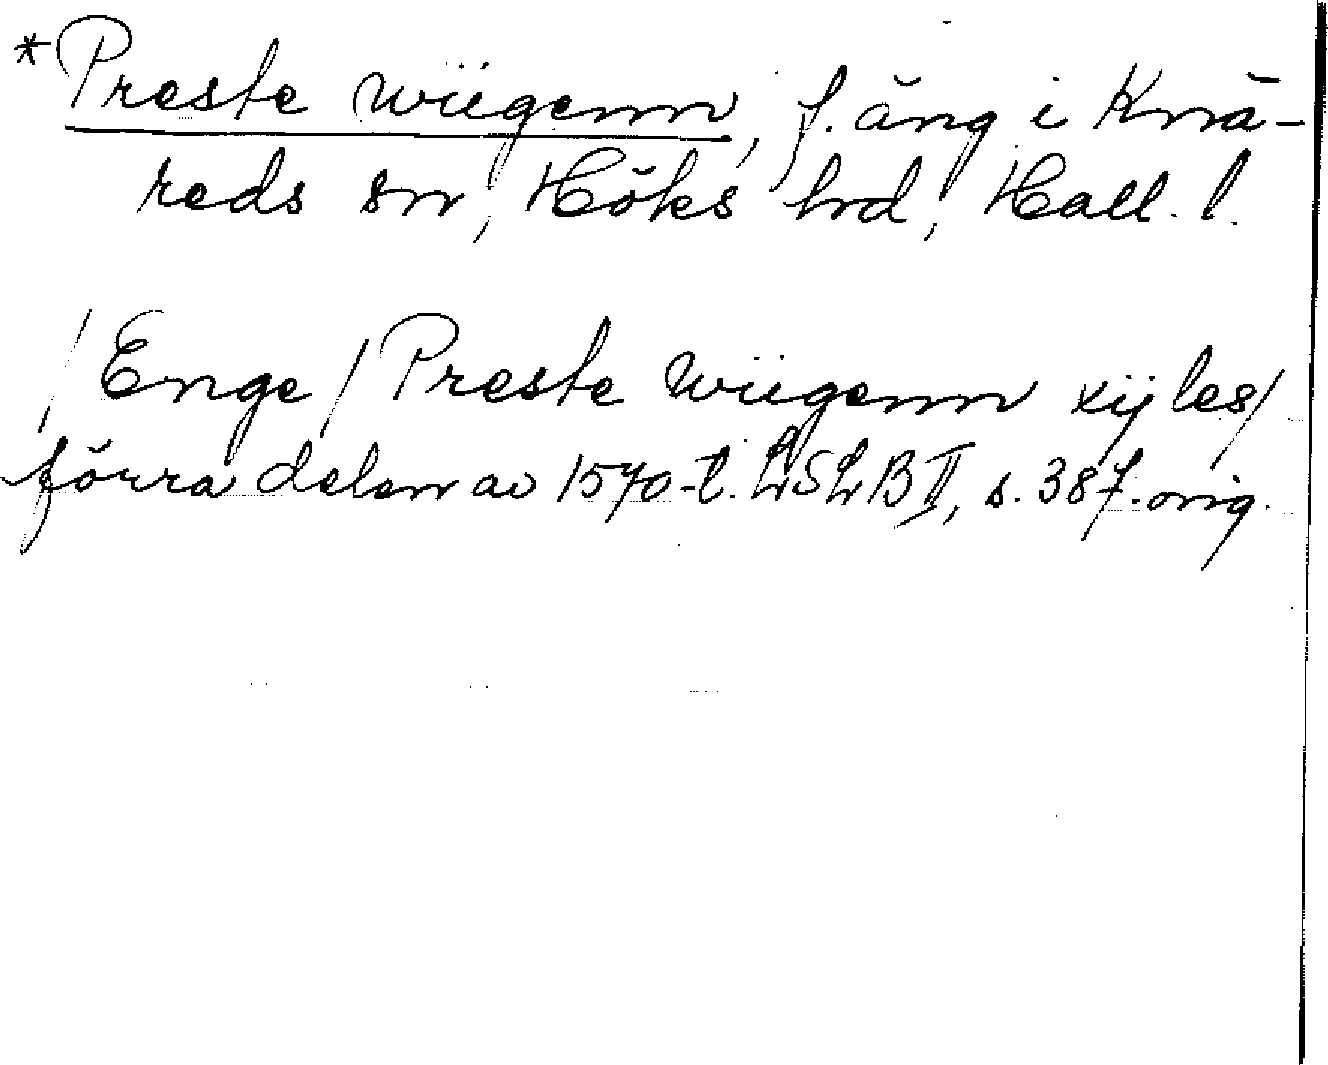 *Preste wiigenn, f. äng i Knä-
reds sn, Höks hd, Hall. l.
/Enge/ Preste wiigenn xij les/
förra delen av 1570-t. LSLB II, s. 387. orig.